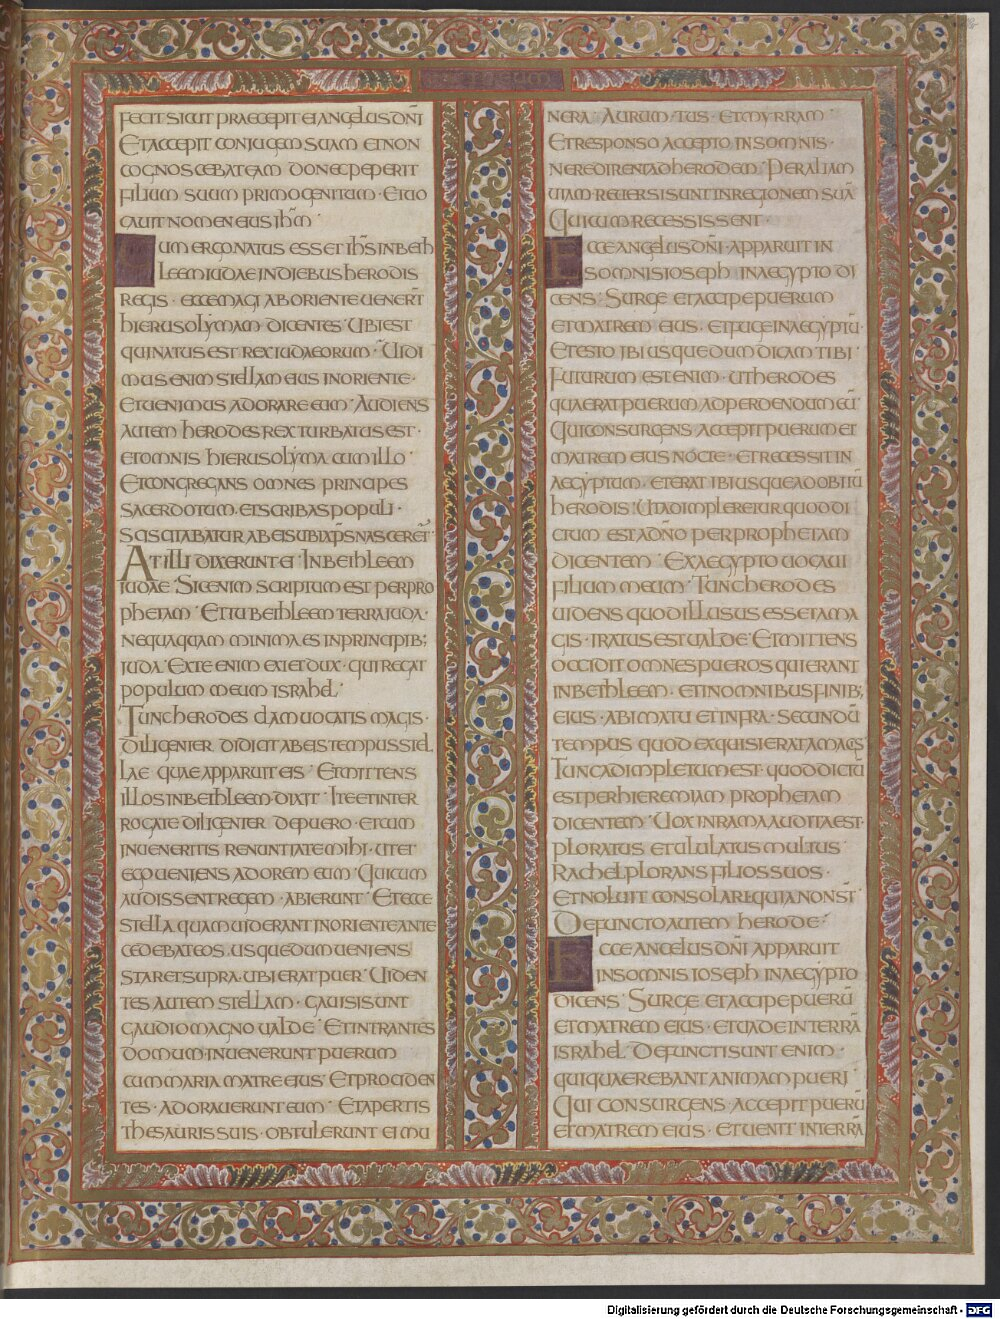 FECIT SICUT PRAECEPIT EI ANGELUS DNI
ET ACCEPIT CONJUGEM SUAM ET NON
COGNOSCEBAT EAM DONEC PEPERIT
FILIUM SUUM PRIMOGENITUM · ET UO
CAUIT NOMEN EIUS IHM ·
CUM ERGO NATUS ESSET IHS IN BETH
LEEM IUDAE IN DIEBUS HERODIS
REGIS · ECCE MAGI AB ORIENTE UENERT
HIERUSOLYMAM · DICENTES · UBI EST
QUI NATUS EST REX IUDAEORUM · UIDI
MUS ENIM STELLAM EIUS IN ORIENTE ·
ET UENIMUS ADORARE EUM · AUDIENS
AUTEM HERODES REX TURBATUS EST ·
ET OMNIS HIERUSOLYMA CUM ILLO
ET CONGREGANS OMNES PRINCIPES
SACERDOTUM · ET SCRIBAS POPULI ·
SCISCITABATUR AB EIS UBI XPS NASCERET ·
AT ILLI DIXERUNT EI · IN BETHLEEM
IUDAE · SIC ENIM SCRIPTUM EST PER PRO
PHETAM · ET TU BETHLEEM TERRA IUDA ·
NEQUAQUAM MINIMA ES IN PRINCIPIB;
IUDA · EX TE ENIM EXIET DUX · QUI REGAT
POPULUM MEUM ISRAHEL ·
TUNC HERODES CLAM UOCATIS MAGIS ·
DILIGENTER DIDICIT AB EIS TEMPUS STEL
LAE QUAE APPARUIT EIS · ET MITTENS
ILLOS IN BETHLEEM · DIXIT · ITE ET INTER
ROGATE DILIGENTER DE PUERO · ET CUM
INUENERITIS RENUNTIATE MIHI · UT ET
EGO UENIENS ADOREM EUM · QUI CUM
AUDISSENT REGEM · ABIERUNT · ET ECCE
STELLA QUAM UIDERANT IN ORIENTE ANTE
CEDEBAT EOS · USQUE DUM UENIENS
STARET SUPRA · UBI ERAT PUER · UIDEN
TES AUTEM STELLAM · GAUISI SUNT
GAUDIO MAGNO UALDE · ET INTRANTES
DOMUM · INUENERUNT PUERUM
CUM MARIA MATRE EIUS · ET PROCIDEN
TES · ADORAUERUNT EUM · ET APERTIS
THESAURIS SUIS · OBTULERUNT EI MU
NERA · AURUM · TUS · ET MYRRAM ·
ET RESPONSO ACCEPTO IN SOMNIS ·
NE REDIRENT AD HERODEM · PER ALIAM
UIAM REUERSI SUNT IN REGIONEM SUA
QUI CUM RECESSISSENT ·
ECCE ANGELUS DNI · APPARUIT IN
SOMNIS IOSEPH IN AEGYPTO DI
CENS · SURGE ET ACCIPE PUERUM
ET MATREM EIUS · ET FUGE IN AEGYPTU ·
ET ESTO IBI USQUE DUM DICAM TIBI ·
FUTURUM EST ENIM · UT HERODES
QUAERAT PUERUM AD PERDENDUM EU
QUI CONSURGENS ACCEPIT PUERUM ET
MATREM EIUS NOCTE · ET RECESSIT IN
AEGYPTUM · ET ERAT IBI USQUE AD OBITU
HERODIS · UT ADIMPLERETUR QUOD DI
CTUM EST A DNO PER PROPHETAM
DICENTEM · EX AEGYPTO UOCAUI
FILIUM MEUM · TUNC HERODES
UIDENS QUOD ILLUSUS ESSET A MA
GIS · IRATUS EST UALDE · ET MITTENS
OCCIDIT OMNES PUEROS QUI ERANT
IN BETHLEEM · ET IN OMNIBUS FINIB;
EIUS · A BIMATU ET INFRA · SECUNDU
TEMPUS QUOD EXQUISIERAT A MAGIS
TUNC ADIMPLETUM EST · QUOD DICTU
EST PER HIEREMIAM PROPHETAM
DICENTEM · UOX IN RAMA AUDITA EST ·
PLORATUS ET ULULATUS MULTUS
RACHEL PLORANS FILIOS SUOS ·
ET NOLUIT CONSOLARI · QUIA NON ST
DEFUNCTO AUTEM HERODE ·
ECCE ANGELUS DNI APPARUIT
IN SOMNIS IOSEPH IN AEGYPTO
DICENS · SURGE ET ACCIPE PUERU
ET MATREM EIUS · ET UADE IN TERRA
ISRAHEL · DEFUNCTI SUNT ENIM ·
QUI QUAEREBANT ANIMAM PUERI ·
QUI CONSURGENS · ACCEPIT PUERU
ET MATREM EIUS · ET UENIT IN TERRA
Digitalisierung gefördert durch die Deutsche Forschungsgemeinschaft - DFG